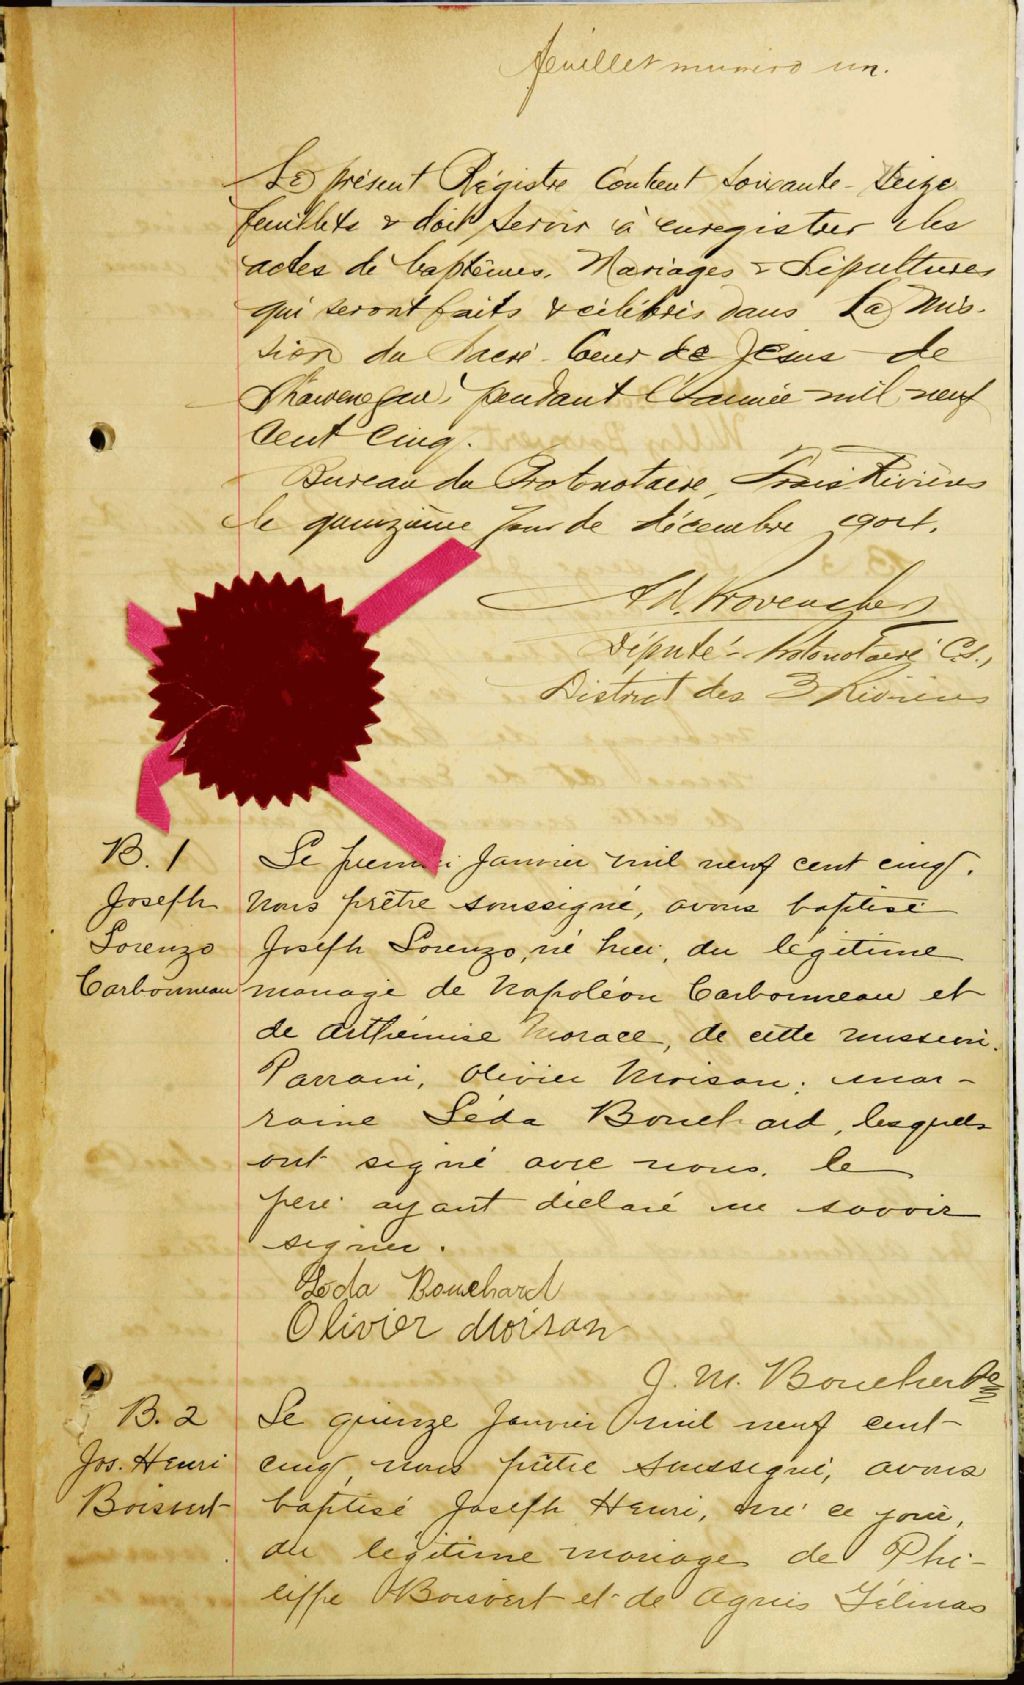 feuillet numéro un.
Le présent Régistre Contient soixante-seize
feuillets & doit servir à enregistrer les
actes de baptêmes, Mariages & Sépultures
qui seront faits & célébrés dans La Mis-
sion du Sacré-Coeur de Jésus de
pendant l'année mil neuf
Cent Cinq.
Bureau du Protonotaire, Trois Rivières
le quinzième jour de décembre 1904.
Ad. Provencher
Député-Protonotaire C.S.,
District des 3 Rivières
B. 1
Joseph
Lorenzo
Carbonneau
Le premier Janvier mil neuf cent cinq,
nous prêtre soussigné, avons baptisé
Joseph Lorenzo, né hier, du légitime
mariage de Napoléon Carbonneau et
de Arthémise Morace, de cette mission.
Parrain, Olivier Moison; mar-
raine Léda Bouchard, lesquels
ont signé avec nous, le
père ayant déclaré ne savoir
signer.
Léda Bouchard
Olivier Moison
J. M. Boucher Ptre
B. 2
Jos. Henri
Boisvert
Le quinze Janvier mil neuf cent
cinq, nous prêtre soussigné, avons
baptisé Joseph Henri, né ce jour,
du légitime mariage de Phi-
lippe Boisvert et de Agnès Gélinas